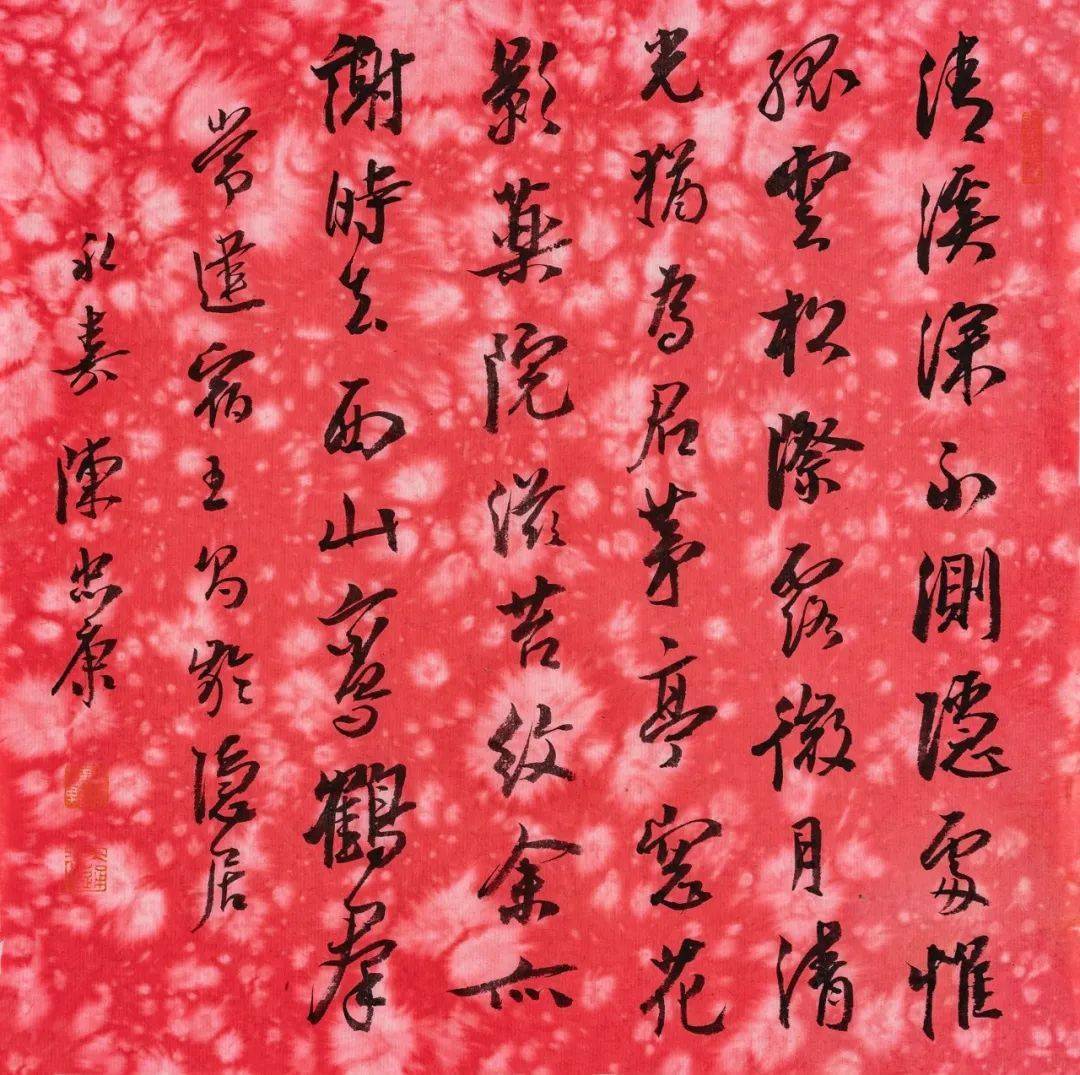 清溪深不測隱處惟
孤雲松際露微月清
光猶為君茅亭窓花
影薬院滋苔紋余亦
謝時去西山鸞鶴羣
常建宿王昌齡隱居
永嘉陳忠康